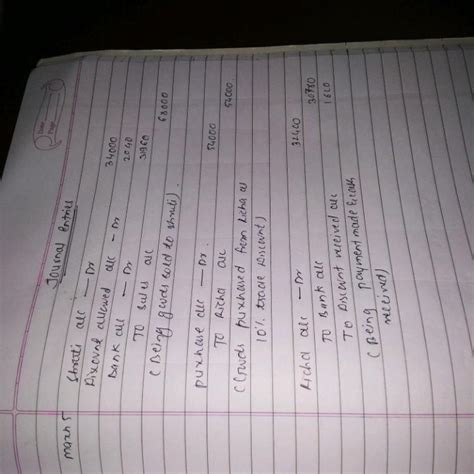 Date
Page
Journal Entries
March 5 Shruti a/c — Dr 34000
Discount allowed a/c — Dr 2040
Bank a/c — Dr 31960
To Sales a/c 68000
(Being goods sold to shruti)
purchase a/c — Dr 54000
To Richa a/c 54000
(Goods purchased from Richa at
10% trade Discount)
Richa a/c — Dr 32400
To Bank a/c 30780
To Discount received a/c 1620
(Being payment made & cash
received)